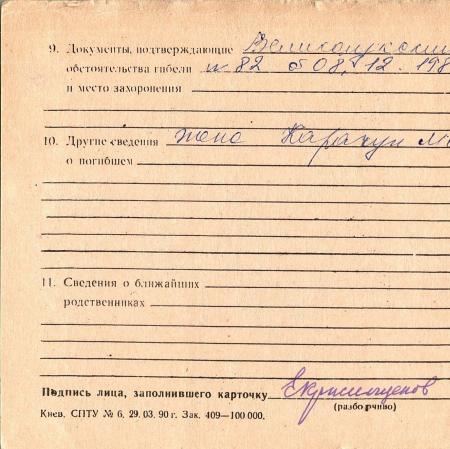 9. Документы, подтверждающие Великолукский
обстоятельства гибели № 82 от 08.12.198
и место захоронения
10. Другие сведения жена Карачун М
о погибшем
11. Сведения о ближайших
родственниках
Подпись лица, заполнившего карточку
(разборчиво)
Киев, СПТУ № 6, 29. 03. 90 г. Зак. 409—100 000.